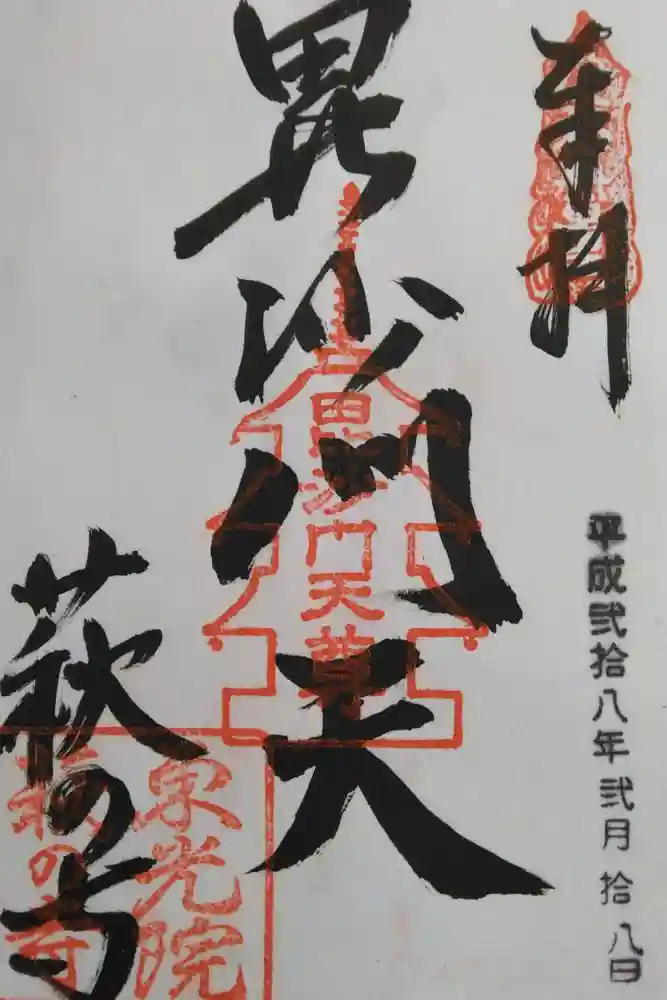 奉拝
平成弐拾八年弐月拾八日
毘沙門天
毘沙門天尊
萩の寺
宗光院
萩の寺